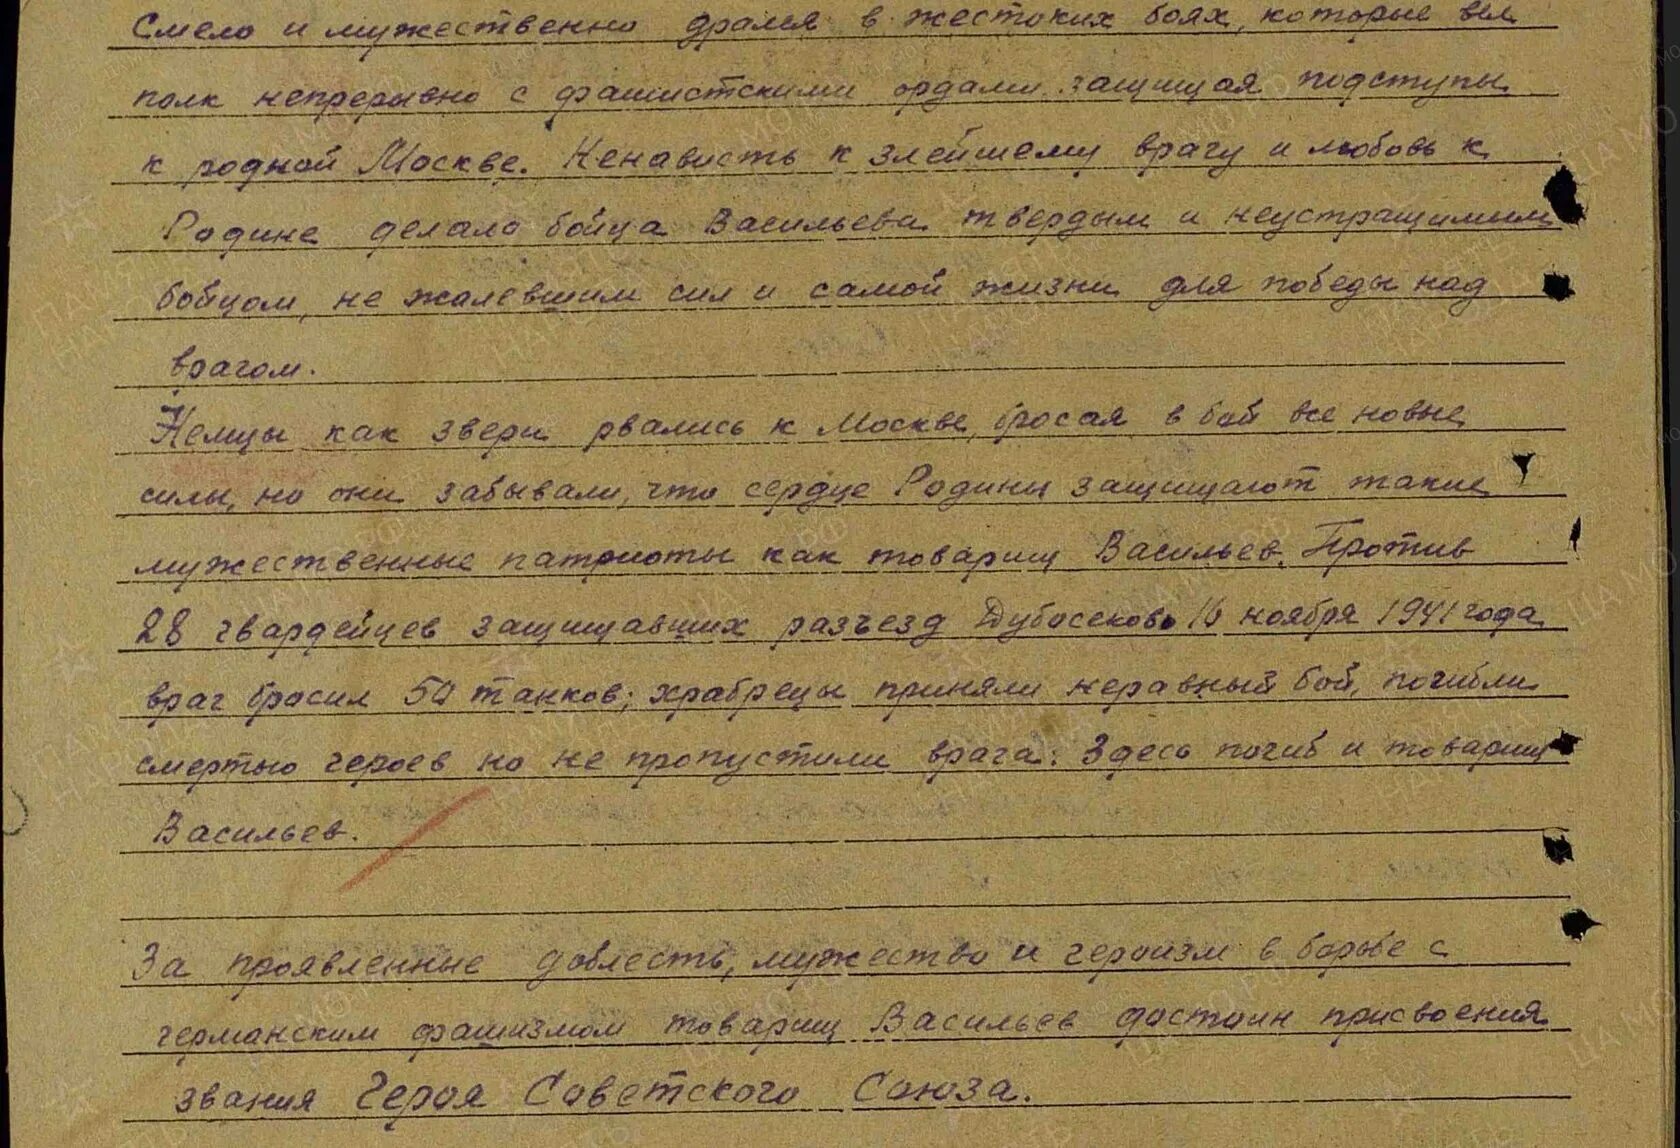 Смело и мужественно дрался в жестоких боях, которые вел
полк непрерывно с фашистскими ордами защищая подступы
к родной Москве. Ненависть к злейшему врагу и любовь к
Родине делало бойца Васильева твердым и неустрашимым
бойцом, не жалевшим сил и самой жизни для победы над
врагом.
Немцы как звери рвались к Москве, бросая в бой все новые
силы, но они забывали, что сердце Родины защищают такие
мужественные патриоты как товарищ Васильев. Против
28 гвардейцев защищавших разъезд Дубосеково 16 ноября 1941 года
враг бросил 50 танков; храбрецы приняли неравный бой, погибли
смертью героев но не пропустили врага. Здесь погиб и товарищ
Васильев.
За проявленные доблесть, мужество и героизм в борьбе с
германским фашизмом товарищ Васильев достоин присвоения
звания Героя Советского Союза.